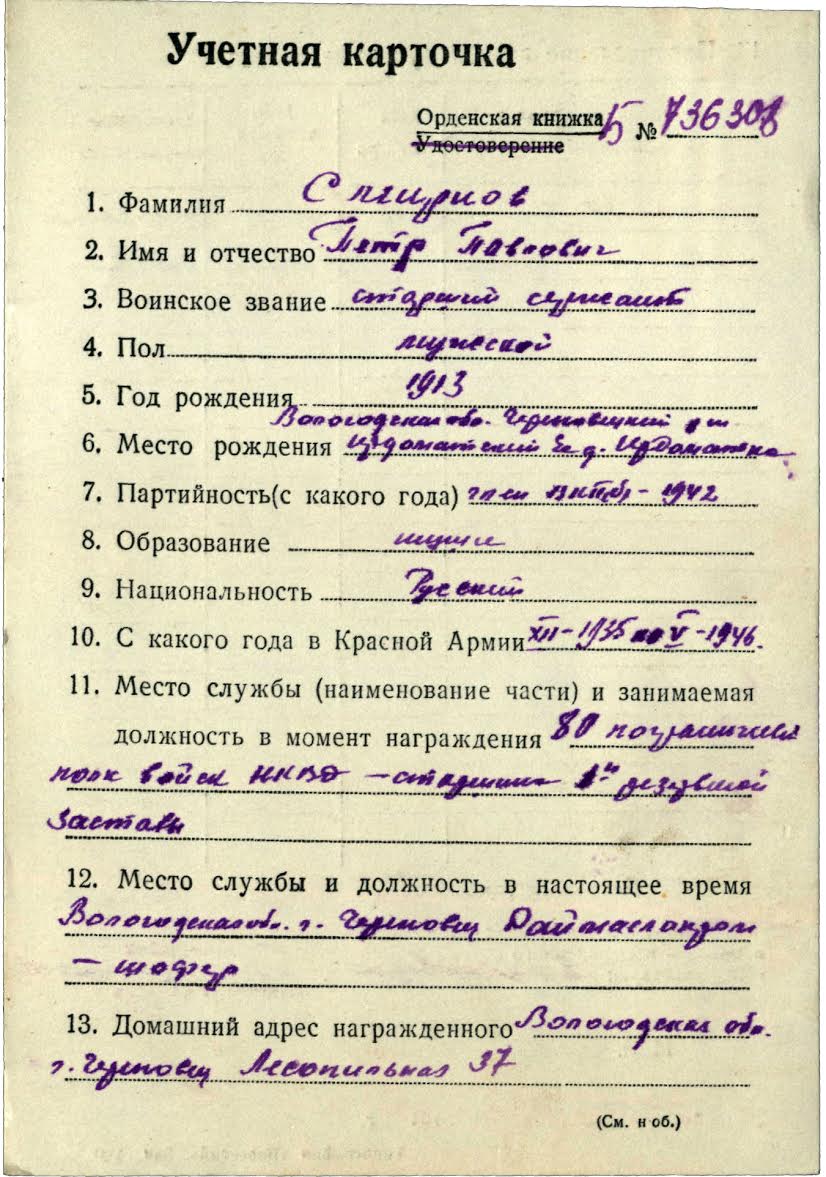 Учетная карточка
Орденская книжка Б № 736308
Удостоверение
1. Фамилия Смирнов
2. Имя и отчество Петр Павлович
3. Воинское звание старший сержант
4. Пол мужской
5. Год рождения 1913
Вологодская обл. Череповецкий р-н
6. Место рождения Ирдоматский д. Ирдоматка
7. Партийность(с какого года) член ВКП(б) - 1942
8. Образование низшее
9. Национальность Русский
10. С какого года в Красной Армии XII-1935 по V-1946.
11. Место службы (наименование части) и занимаемая
должность в момент награждения 80 пограничный
полк войск НКВД - старшина 1й резервной
заставы
12. Место службы и должность в настоящее время
Вологодская обл. г. Череповец
- шофер
13. Домашний адрес награжденного Вологодская обл.
г. Череповец Лесопильная 37
(См. н об.)